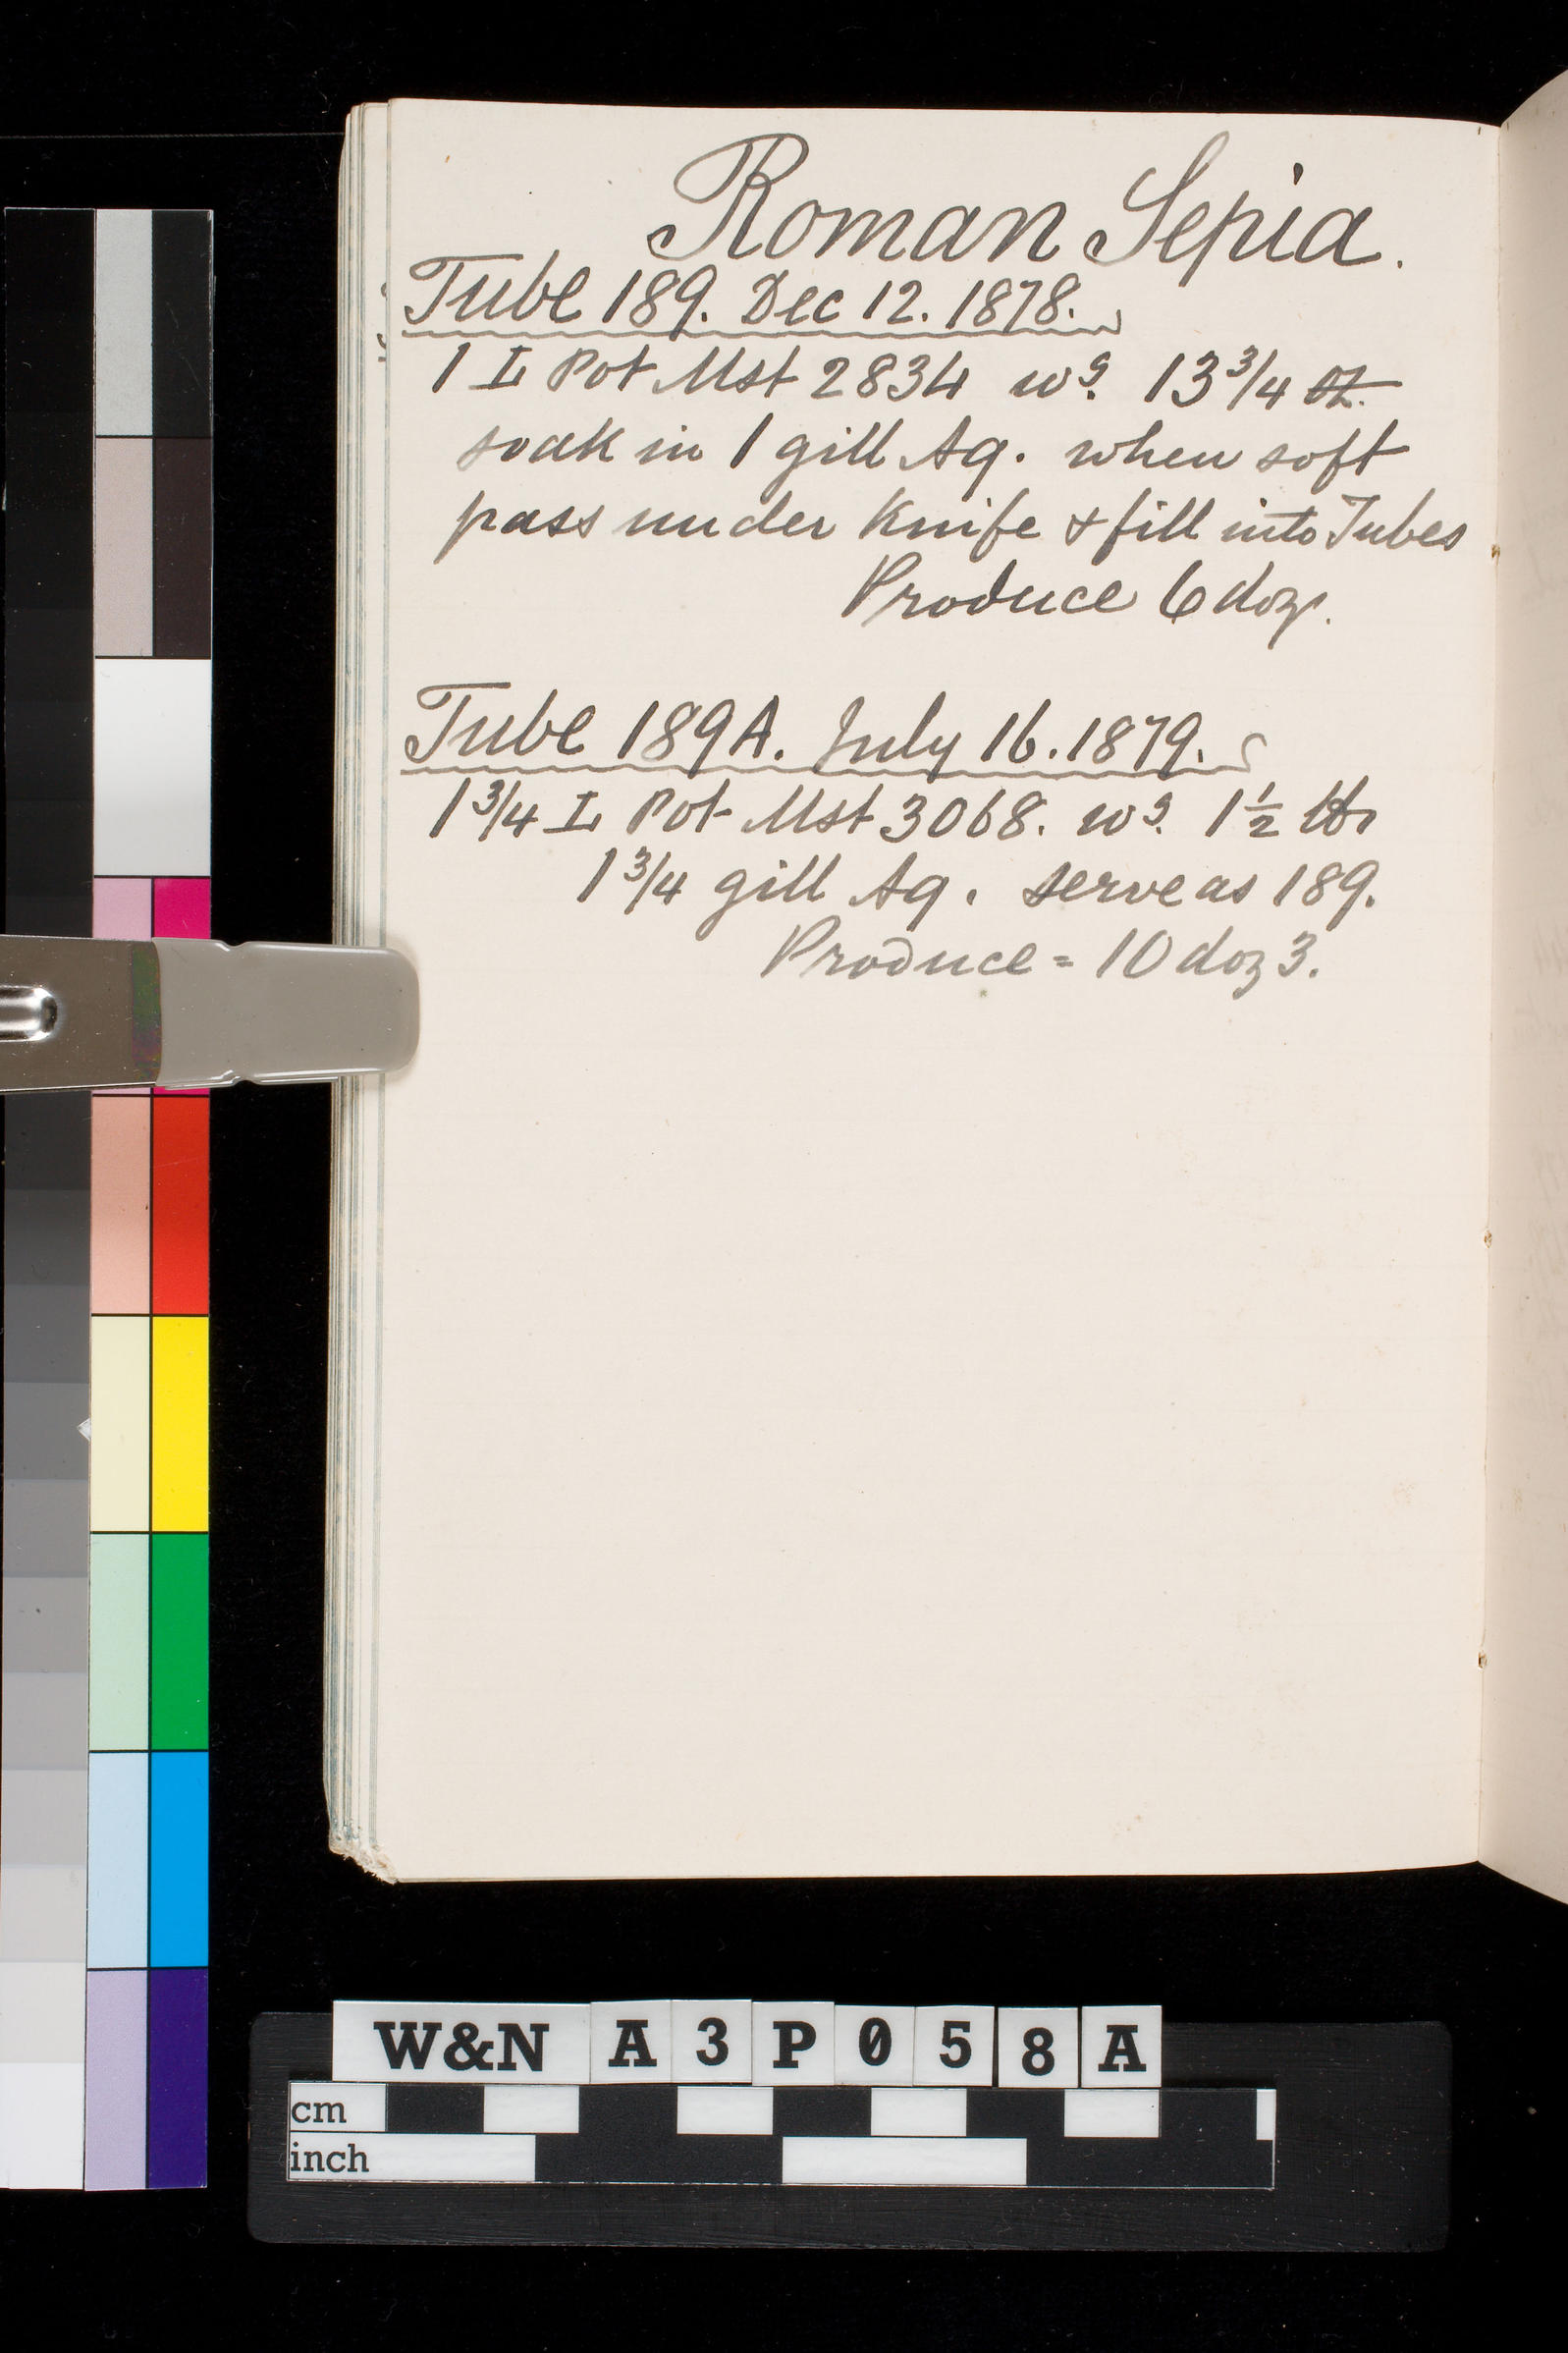 Roman Sepia.
Tube 189. Dec 12. 1878.
1 L Pot Mst 2834 wg. 13 3/4 oz.
soak in 1 gill Aq. when soft
pass under Knife & fill into Tubes
Produce 6 doz.
Tube 189A. July 16. 1879.
1 3/4 L Pot Mst 3068. wg. 1 1/2 lb
1 3/4 gill Aq. serve as 189.
Produce = 10 doz 3.
W&N A3P058A
cm
inch